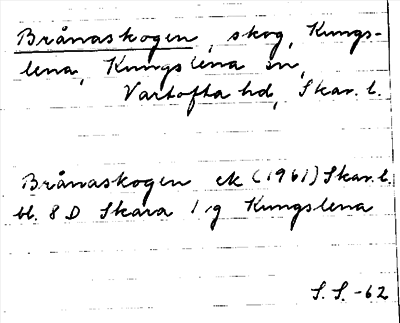 Brånaskogen, skog, Kungs-
lena, Kungslena sn,
Vartofta hd, Skar. l.
Brånaskogen ek (1961) Skar. l.
bl. 8 D Skara 1 g Kungslena
S. S. -62